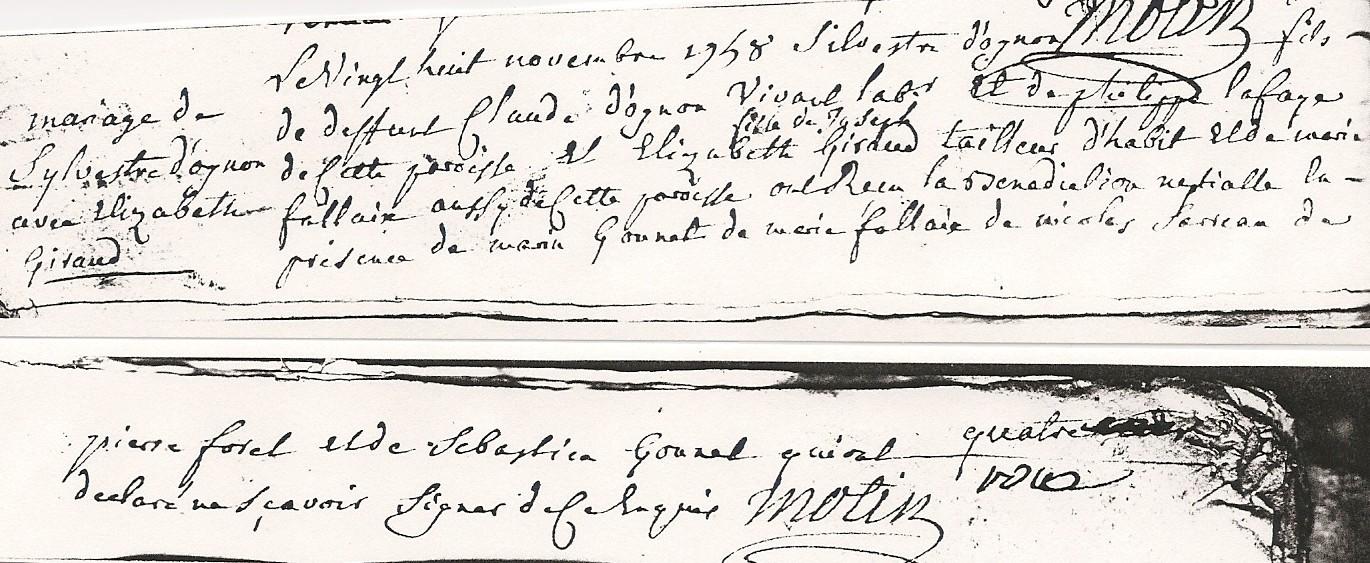 Motin
Le Vingt huit novembre 1758 Silvestre d'ognon fils
de deffunt Claude d'ognon Vivant labr et de phelippe lafaye
fille de Joseph
de Cette paroisse et Elizabeth Giraud tailleur d'habit et de marie
fallaix aussy de Cette paroisse ont Receu la Benediction nuptialle En
présence de marin Gounet de marie fallaix de nicolas Sarreau de
mariage de
Sylvestre d'ognon
avec Elizabeth
Giraud
pierre foret et de Sebastien Gounet qui ont
declaré ne sçavoir Signer de Ce Enquis Motin
quatre